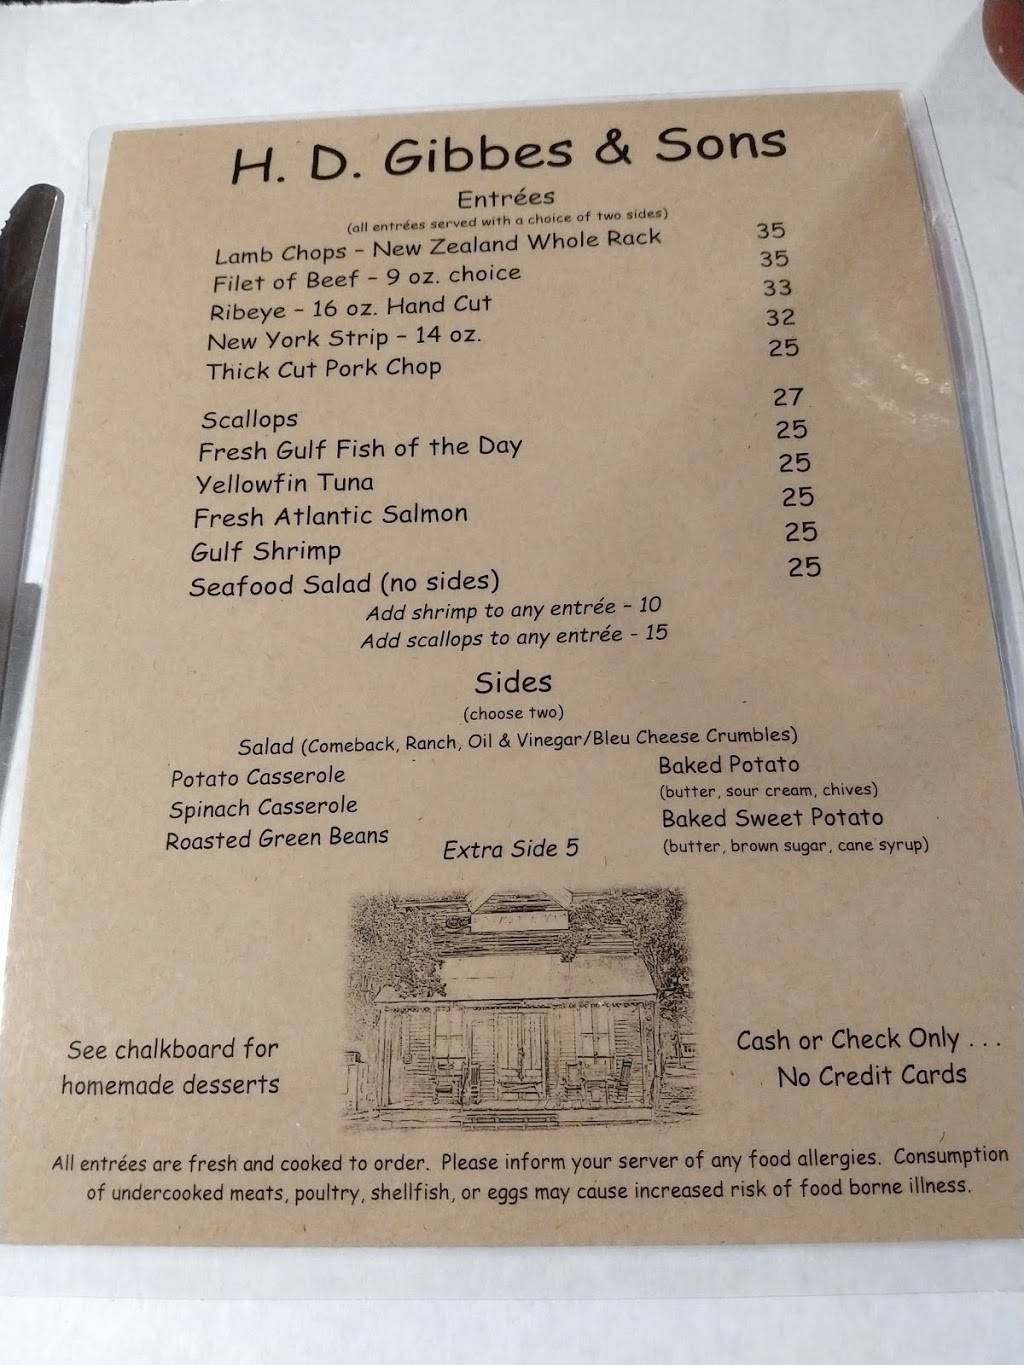 H. D. Gibbes & Sons
Entrées
(all entrées served with a choice of two sides)
Lamb Chops - New Zealand Whole Rack 35
Filet of Beef - 9 oz. choice 35
Ribeye - 16 oz. Hand Cut 33
New York Strip - 14 oz. 32
Thick Cut Pork Chop 25
Scallops 27
Fresh Gulf Fish of the Day 25
Yellowfin Tuna 25
Fresh Atlantic Salmon 25
Gulf Shrimp 25
Seafood Salad (no sides) 25
Add shrimp to any entrée - 10
Add scallops to any entrée - 15
Sides
(choose two)
Salad (Comeback, Ranch, Oil & Vinegar/Bleu Cheese Crumbles)
Potato Casserole
Spinach Casserole
Roasted Green Beans
Baked Potato
(butter, sour cream, chives)
Baked Sweet Potato
(butter, brown sugar, cane syrup)
Extra Side 5
See chalkboard for
homemade desserts
Cash or Check Only . . .
No Credit Cards
All entrées are fresh and cooked to order. Please inform your server of any food allergies. Consumption
of undercooked meats, poultry, shellfish, or eggs may cause increased risk of food borne illness.